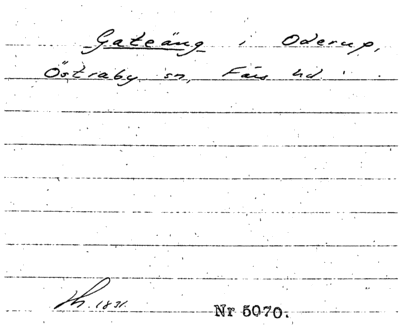 Gateäng i Oderup,
Östraby sn, Färs hd.
1831.
Nr 5070.